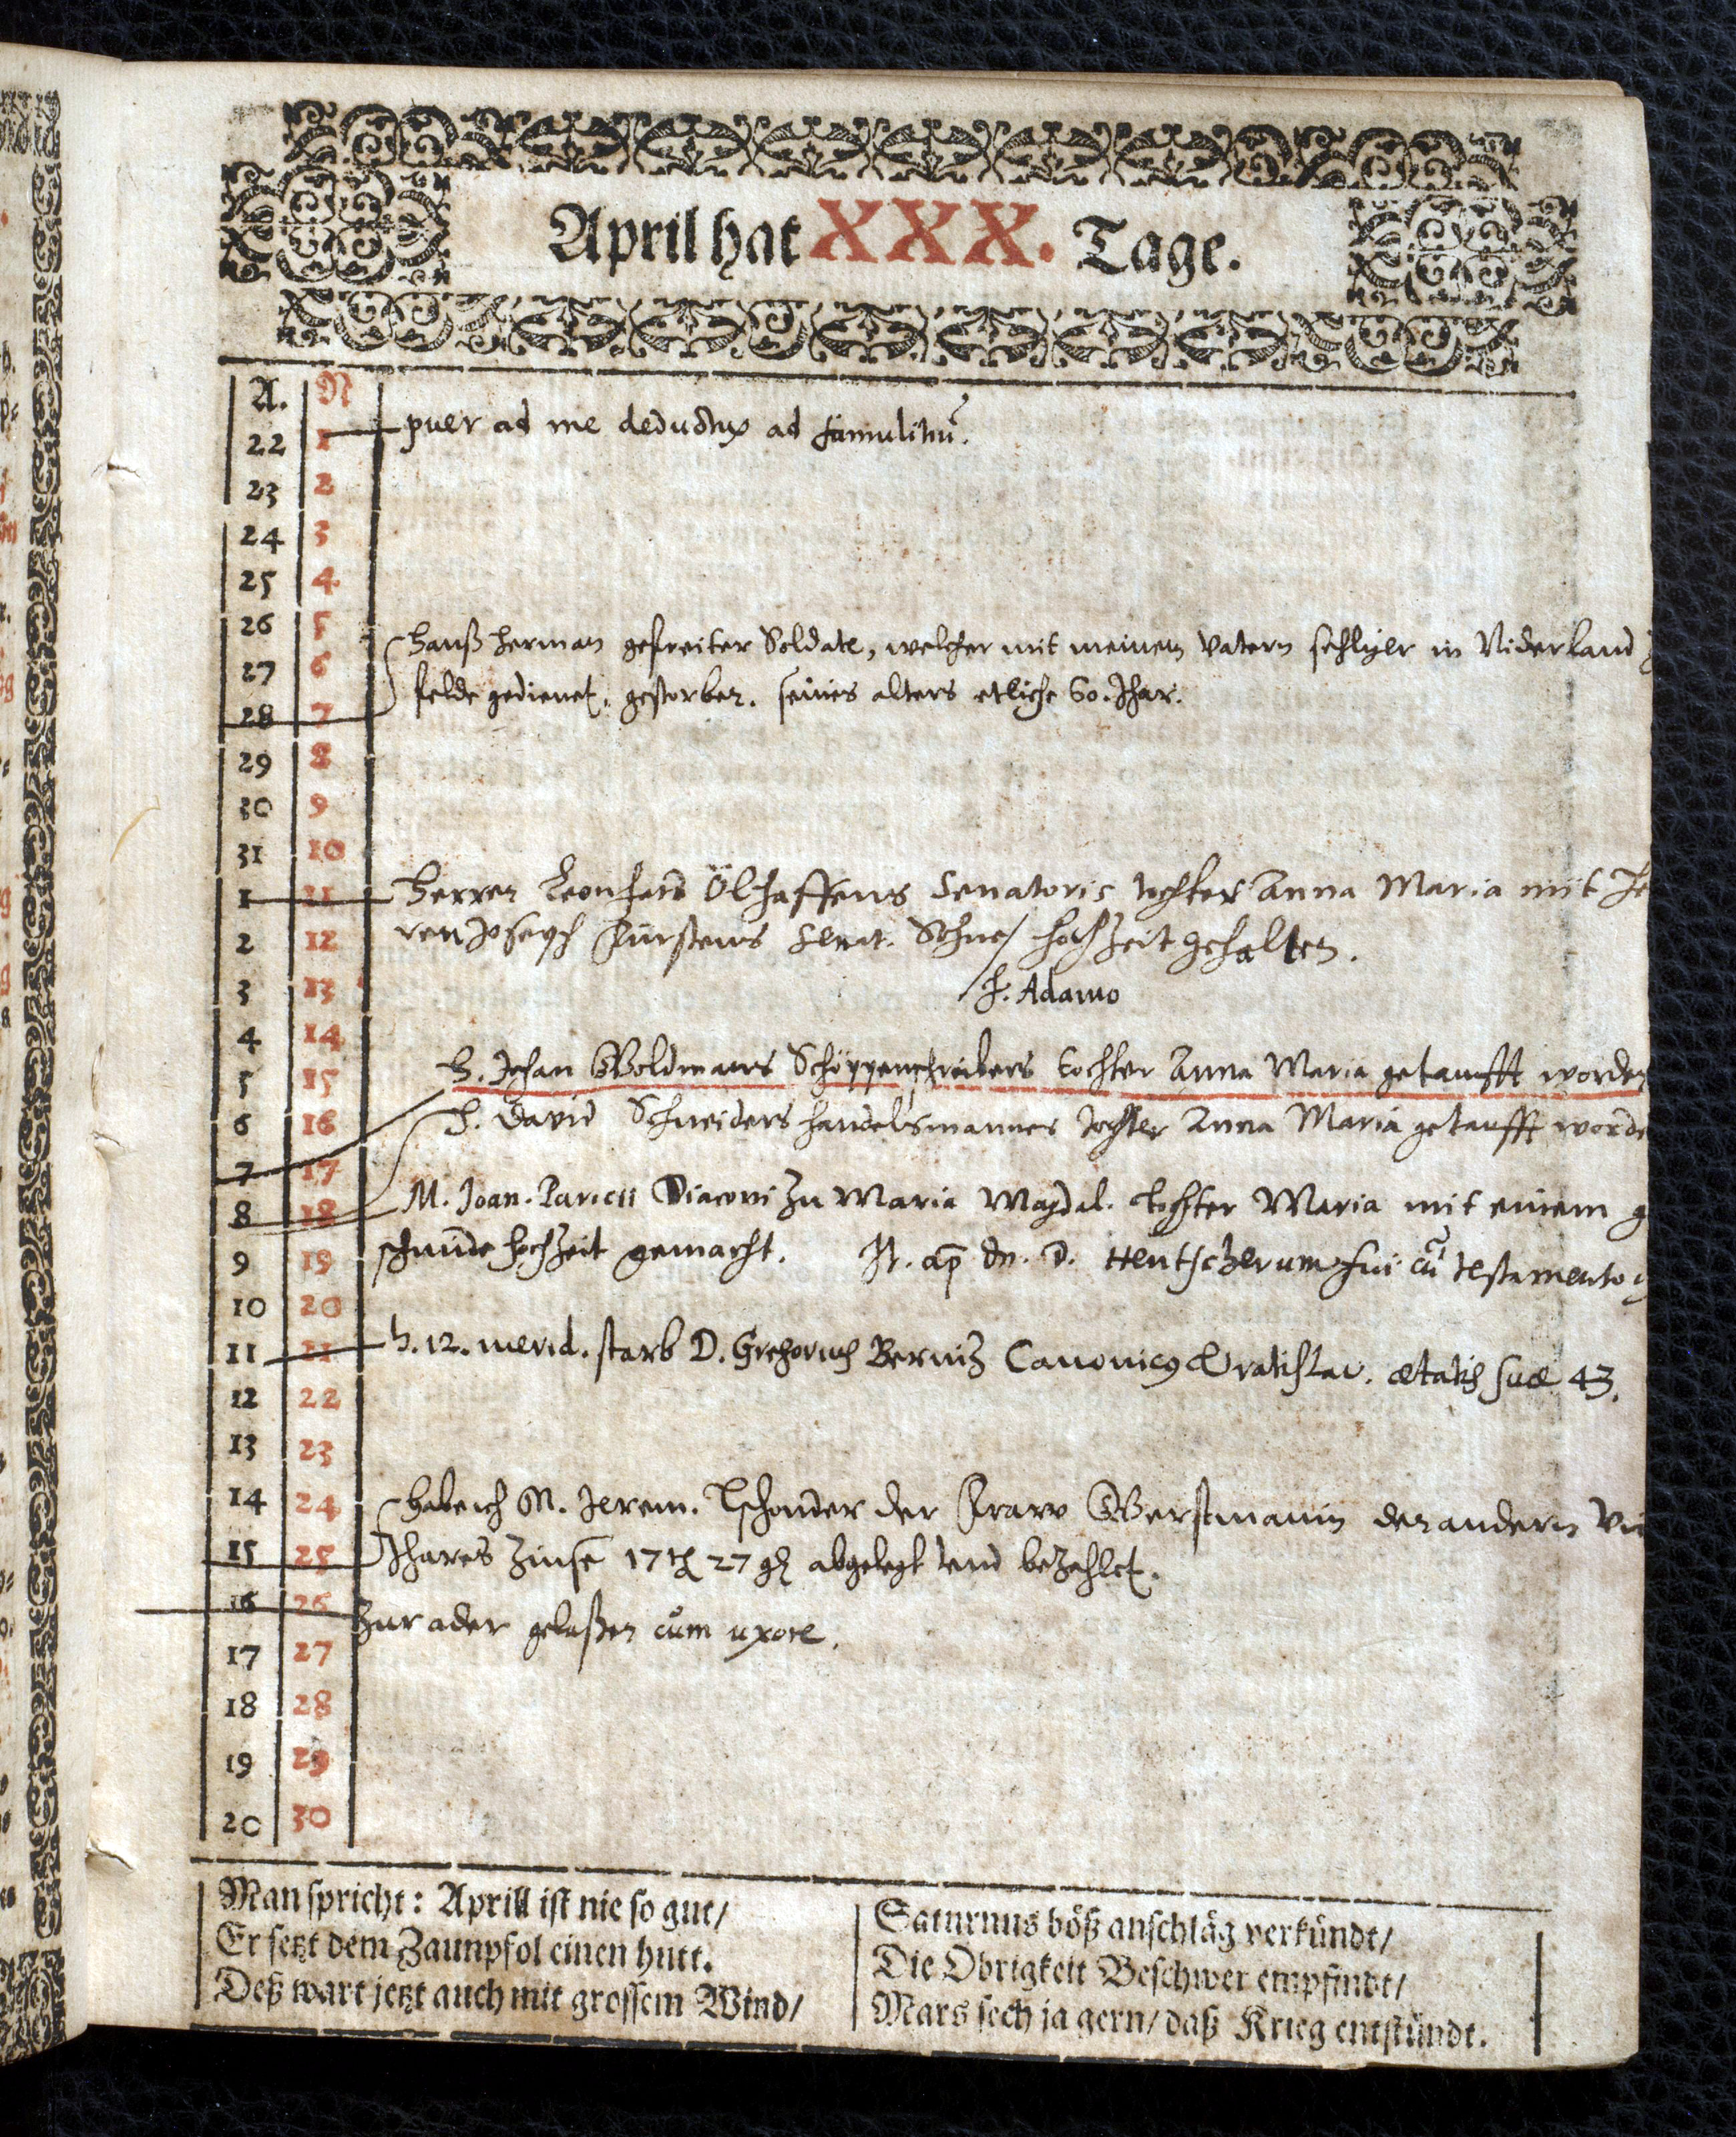 April hat XXX. Tage.
A. N
22 1 puer ad me deductus ad famulitiũ.
23 2
24 3
25 4
26 5 Hanß Herman gefreiter Soldate, welcher mit meinem Vatern sehliger in Niderland
27 6 felde gedienet, gestorben. seines alters etliche 60. Jhar.
28 7
29 8
30 9
31 10
1 11 Herren Leonhard Ölhaffens Senatoris tochter Anna Maria mit He
2 12 ren Joseph Fürstens Senat. Sohne hochzeit gehalten.
3 13 H. Adamo
4 14
5 15 H. Johan Woldmans Schöppenschreibers tochter Anna Maria getaufft worden
6 16 H. David Schneiders handelsmannes tochter Anna Maria getaufft worde
7 17
8 18 M. Joan. Paricii Diaconi zu Maria Magdal. tochter Maria mit einem
9 19 hochzeit gemacht. It. ap dn. D. Hentscherum fui cũ testamento
10 20
11 21 H. 12. merid. starb D. Gregorius Berniz Canonicus Vratislav. ætatis suæ 43.
12 22
13 23
14 24 Habe ich M. Jerem. Tschonder der Fraw Gerstmanin den andern
15 25 Jhares Zinse 17 27 abgelegt und bezahlet.
16 26 Zur ader gelaßen cum uxore.
17 27
18 28
19 29
20 30
Man spricht: Aprill ist nie so gut/
Er setzt dem Zaunpfol einen hutt.
Deß wart jetzt auch mit grossem Wind/
Saturnus böß anschläg verkündt/
Die Obrigkeit Beschwer empfindt/
Mars sech ja gern/ daß Krieg entstündt.